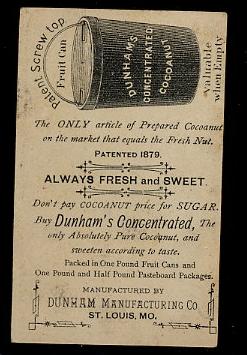 Patent Screw top
Fruit Can
DUNHAM'S
CONCENTRATED
COCOANUT
Valuable
when Empty
The ONLY article of Prepared Cocoanut
on the market that equals the Fresh Nut.
PATENTED 1879.
ALWAYS FRESH and SWEET.
Don't pay COCOANUT price for SUGAR.
Buy Dunham's Concentrated, The
only Absolutely Pure Cocoanut, and
sweeten according to taste.
Packed in One Pound Fruit Cans and
One Pound and Half Pound Pasteboard Packages.
MANUFACTURED BY
DUNHAM MANUFACTURING CO
ST. LOUIS, MO.